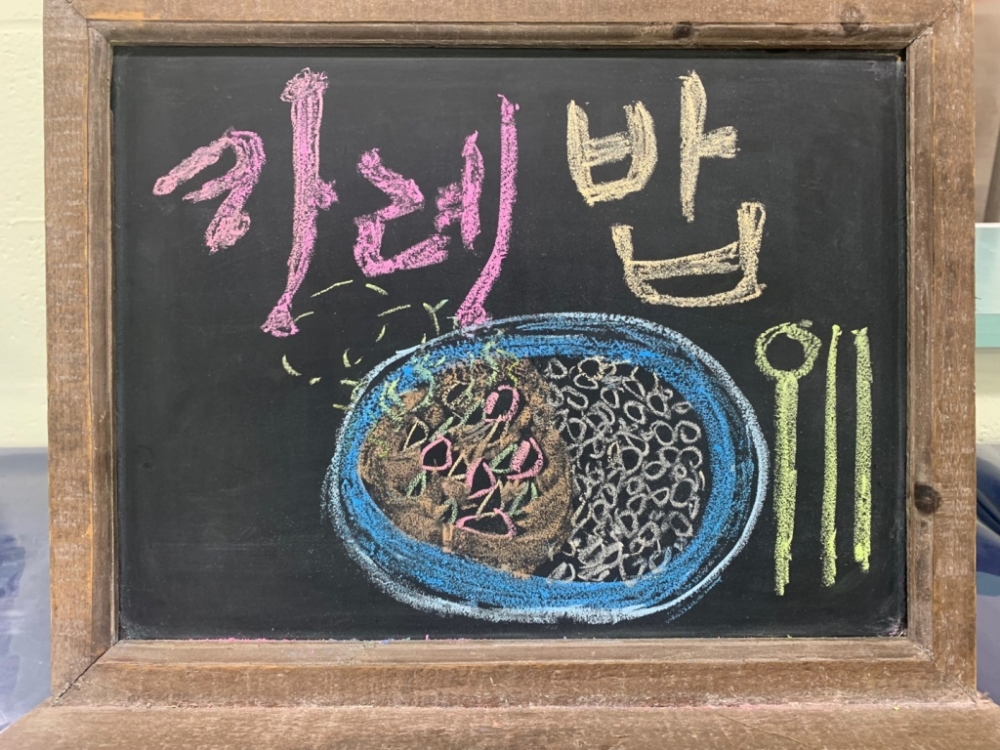 카레 밥